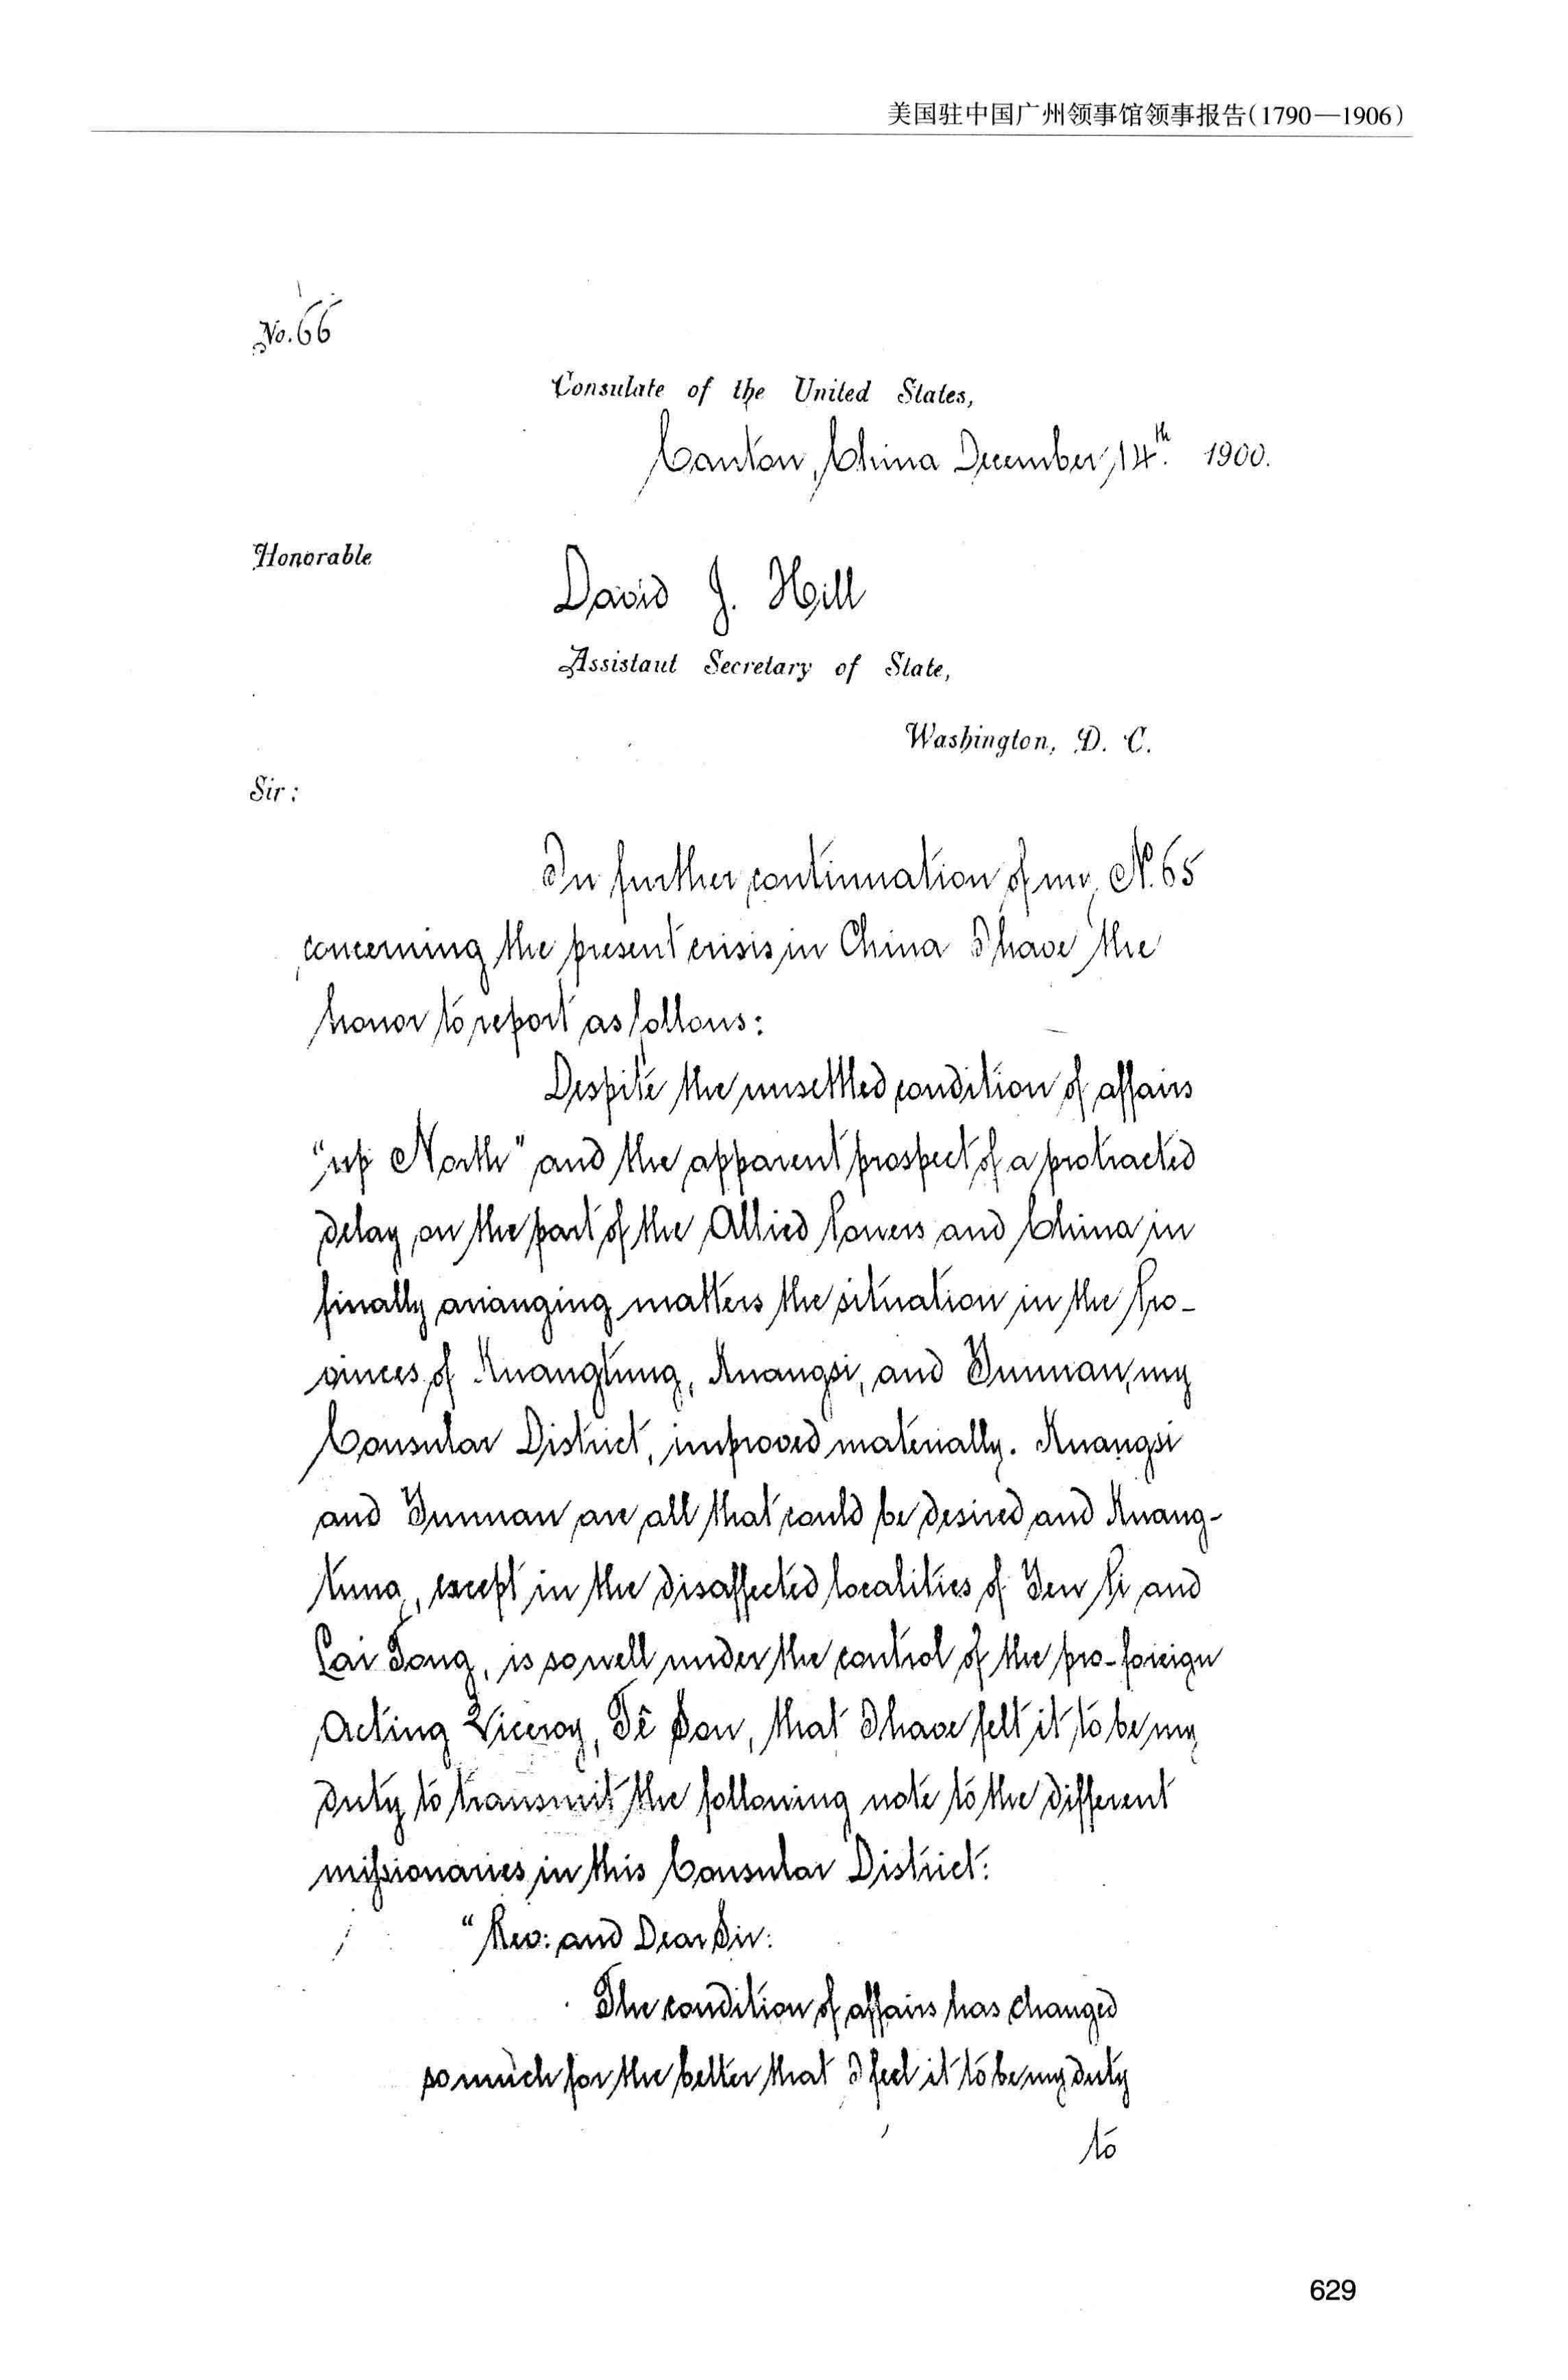 美国驻中国广州领事馆领事报告(1790—1906)
No. 66
Consulate of the United States,
Canton, China December, 14th. 1900.
Honorable
David J. Hill
Assistant Secretary of State,
Washington, D. C.
Sir:
In further continuation of my No. 65
concerning the present crisis in China I have the
honor to report as follows:
Despite the unsettled condition of affairs
"up North" and the apparent prospect of a protracted
delay on the part of the Allied Powers and China in
finally arranging matters the situation in the Pro-
vinces of Kuangtung, Kuangsi, and Yunnan, my
Consular District, improved materially. Kuangsi
and Yunnan are all that could be desired and Kuang-
tung, except in the disaffected localities of Yen Pi and
Pai Tong, is so well under the control of the pro-foreign
Acting Viceroy, Tê Sou, that I have felt it to be my
duty to transmit the following note to the different
missionaries in this Consular District:
"Rev: and Dear Sir:
The condition of affairs has changed
so much for the better that I feel it to be my duty
to
629